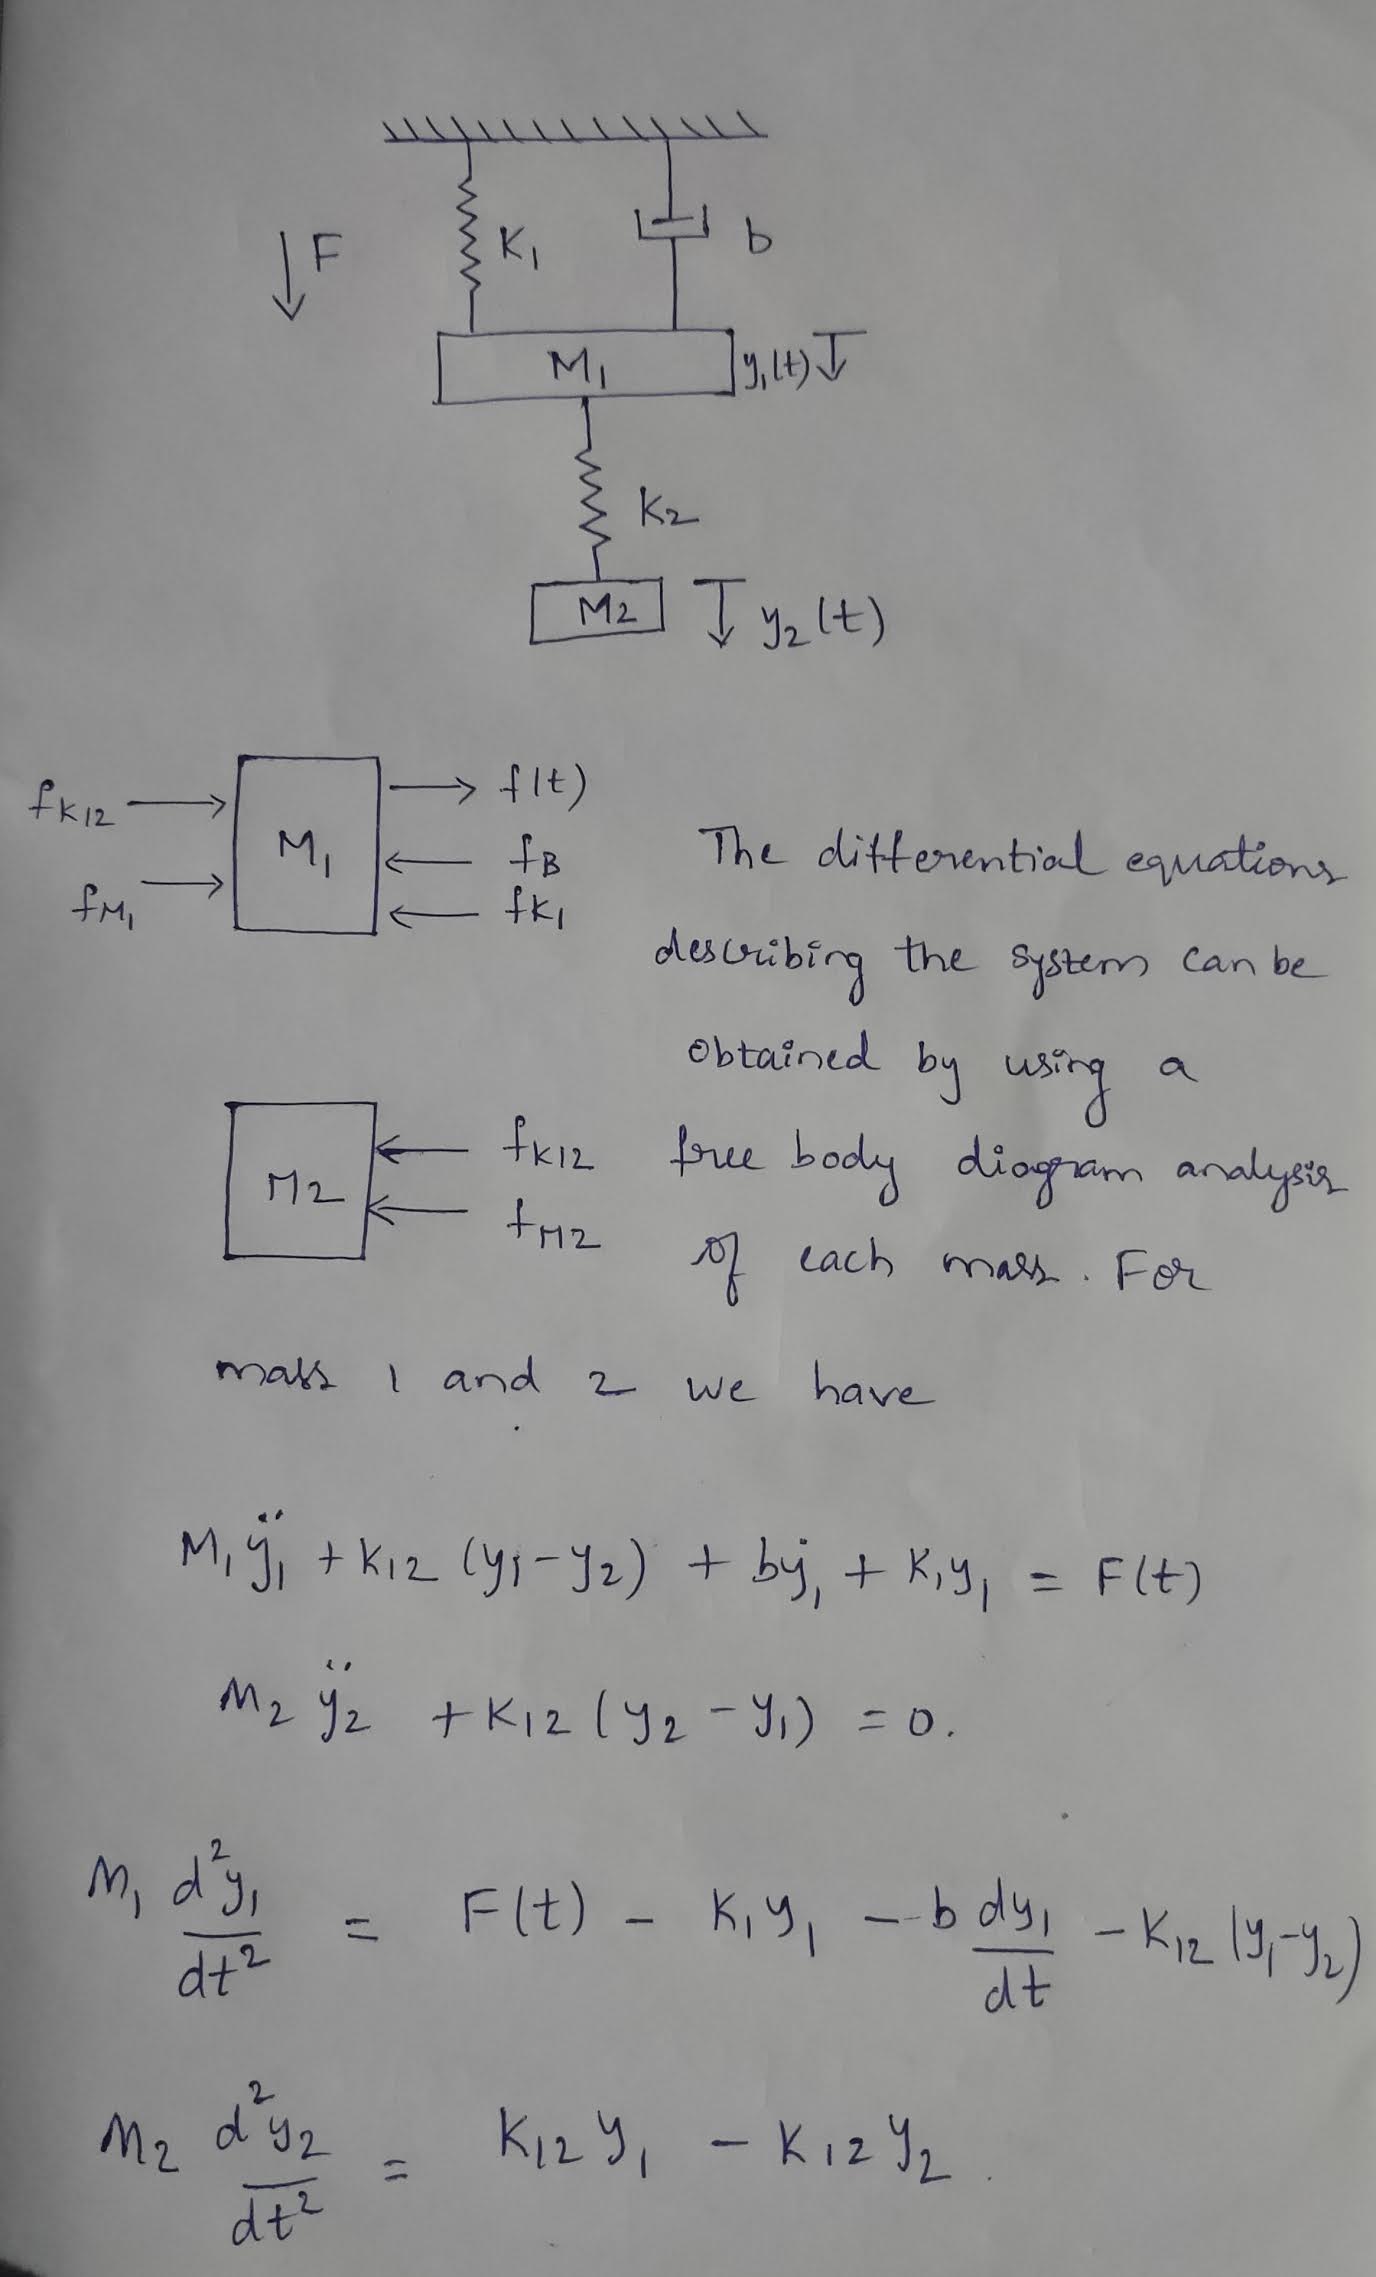 F
K₁
b
M₁ y₁(t)
K₂
M2
y₂(t)
fK12
fM₁
M₁
f(t)
fB
fK₁
The differential equations
describing the system can be
obtained by using a
M2
fK12
fM2
free body diagram analysis
of each mass. For
mass 1 and 2 we have
M₁ÿ₁ + K12 (y₁-y₂) + bẏ₁ + K₁y₁ = F(t)
M₂ ÿ₂ + K12 (y₂ - y₁) = 0.
M₁ d²y₁/dt² = F(t) - K₁y₁ - b dy₁/dt - K₁₂ (y₁-y₂)
M₂ d²y₂/dt² = K12 y₁ - K12 y₂.